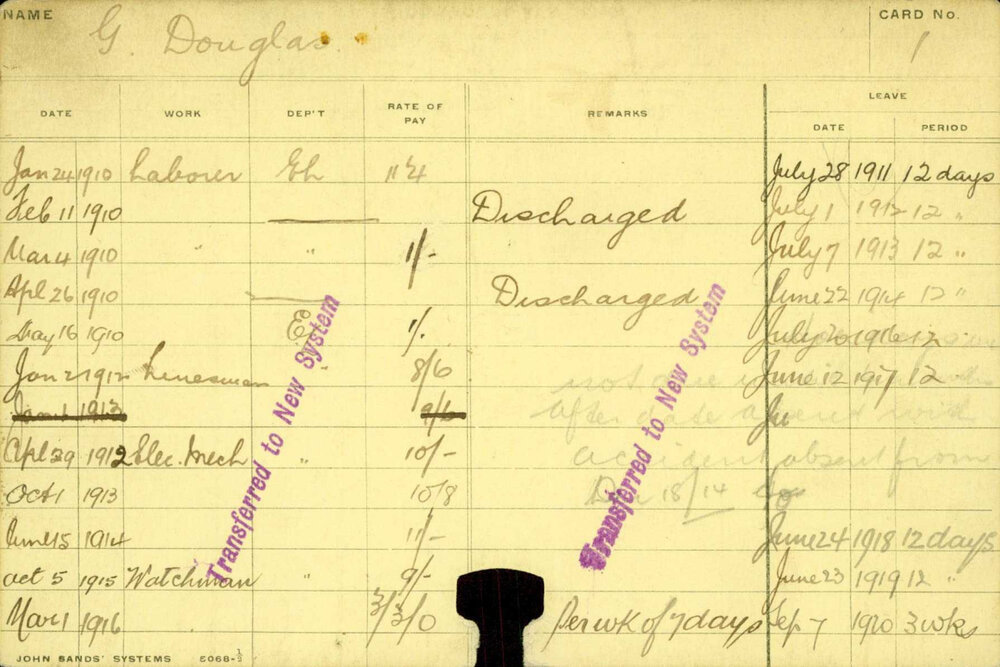 NAME G. Douglas. CARD No. 1
LEAVE
DATE WORK DEP'T RATE OF PAY REMARKS DATE PERIOD
Jan 24 1910 Laborer Eh July 28 1911 12 days
Feb 11 1910 Discharged July 1 1912 12 "
Mar 4 1910 " " 1/- July 7 1913 12 "
Apl 26 1910 Discharged June 22 1914 12 "
May 16 1910 E 1/- July 20 1916 12
Jan 2 1912 Linesman " 8/6 not June 12 1917 12
Jan 1 1913 9/6 after date
Apl 29 1912 Elec. Mech " 10/- accident absent from
Oct 1 1913 10/8 18/14
June 15 1914 11/- June 24 1918 12 days
Oct 5 1915 Watchman " 9/- June 23 1919 12 "
Mar 1 1916 3/3/0 Per wk of 7 days Sep 7 1920 3 wks
Transferred to New System
Transferred to New System
JOHN SANDS' SYSTEMS